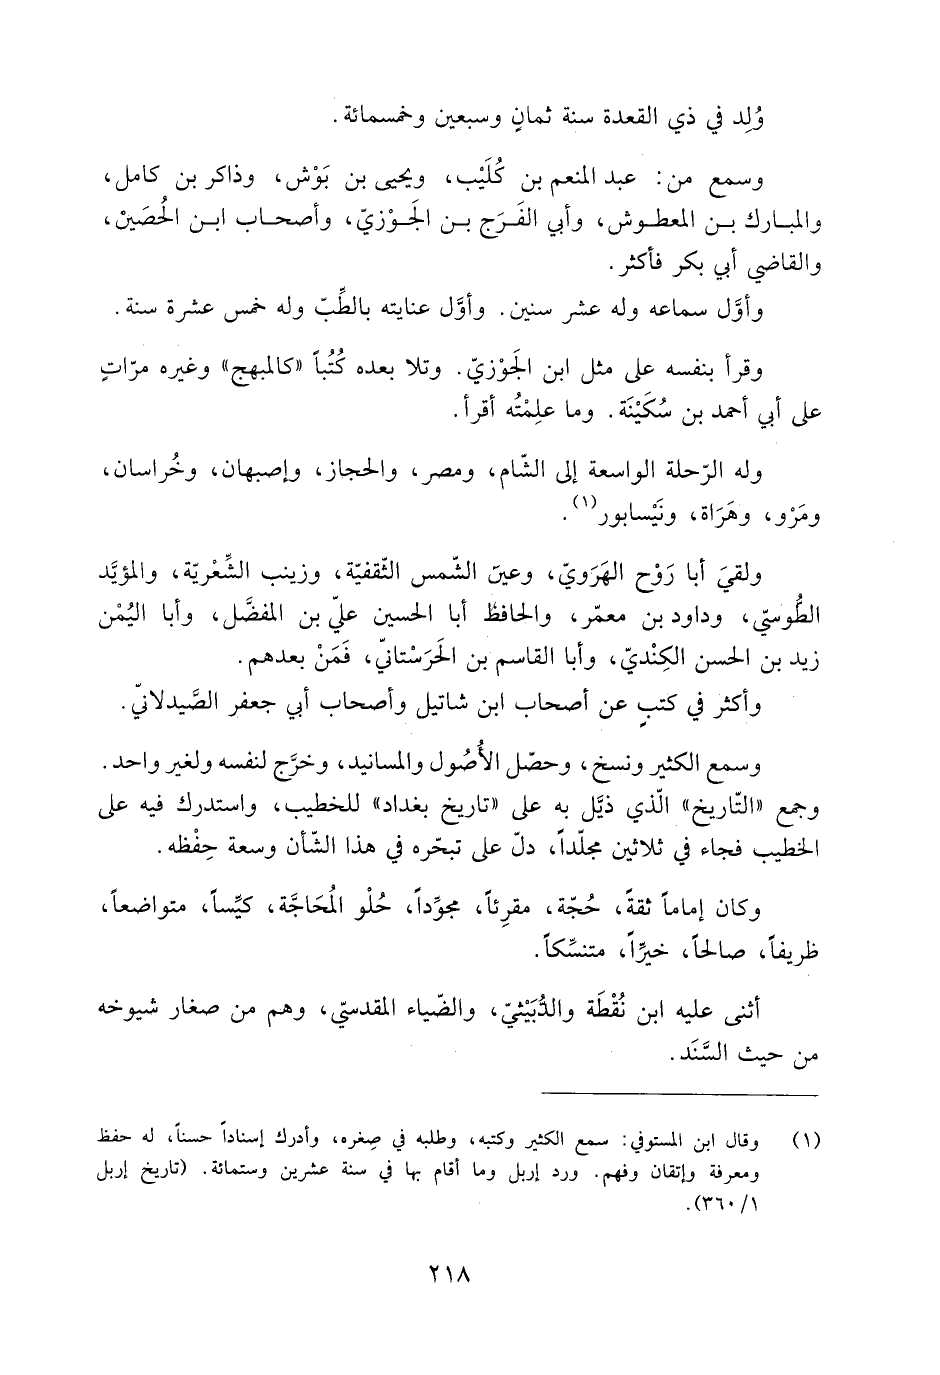 وُلِد في ذي القعدة سنة ثمانٍ وسبعين وخمسمائة.
وسمع من: عبد المنعم بن كُلَيْب، ويحيى بن بَوْش، وذاكر بن كامل،
والمبارك بن المعطوش، وأبي الفَرَج بن الجَوْزيّ، وأصحاب ابن الحُصَيْن،
والقاضي أبي بكر فأكثر.
وأوَّل سماعه وله عشر سنين. وأوَّل عنايته بالطِّبّ وله خمس عشرة سنة.
وقرأ بنفسه على مثل ابن الجَوْزيّ. وتلا بعده كُتُباً «كالمبهج» وغيره مرّاتٍ
على أبي أحمد بن سُكَيْنَة. وما علِمْتُه أقرأ.
وله الرّحلة الواسعة إلى الشّام، ومصر، والحجاز، وإصبهان، وخُراسان،
ومَرْو، وهَرَاة، ونَيْسابور(١).
ولقيَ أبا رَوْح الهَرَويّ، وعينَ الشّمس الثّقفيّة، وزينب الشِّعْريّة، والمؤيَّد
الطُوسيّ، وداود بن معمّر، والحافظُ أبا الحسين عليّ بن المفضَّل، وأبا اليُمْن
زيد بن الحسن الكِنْديّ، وأبا القاسم بن الحَرَسْتانيّ، فَمَنْ بعدهم.
وأكثر في كتبٍ عن أصحاب ابن شاتيل وأصحاب أبي جعفر الصَّيدلانيّ.
وسمع الكثير ونسخ، وحصّل الأُصُول والمسانيد، وخرَّج لنفسه ولغير واحد.
وجمع «التّاريخ» الّذي ذيَّل به على «تاريخ بغداد» للخطيب، واستدرك فيه على
الخطيب فجاء في ثلاثين مجلّداً، دلّ على تبحّره في هذا الشّأن وسعة حِفْظه.
وكان إماماً ثقةً، حُجّة، مقرِئاً، مجوِّداً، حُلْو المُحَاجَّة، كيِّساً، متواضعاً،
ظريفاً، صالحاً، خيرِّاً، متنسِّكاً.
أثنى عليه ابن نُقْطَة والدُّبَيْثيّ، والضّياء المقدسيّ، وهم من صغار شيوخه
من حيث السَّنَد.
(١) وقال ابن المستوفي: سمع الكثير وكتبه، وطلبه في صِغره، وأدرك إسناداً حسناً، له حفظ
ومعرفة وإتقان وفهم. ورد إربل وما أقام بها في سنة عشرين وستمائة. (تاريخ إربل
١/ ٣٦٠).
٢١٨